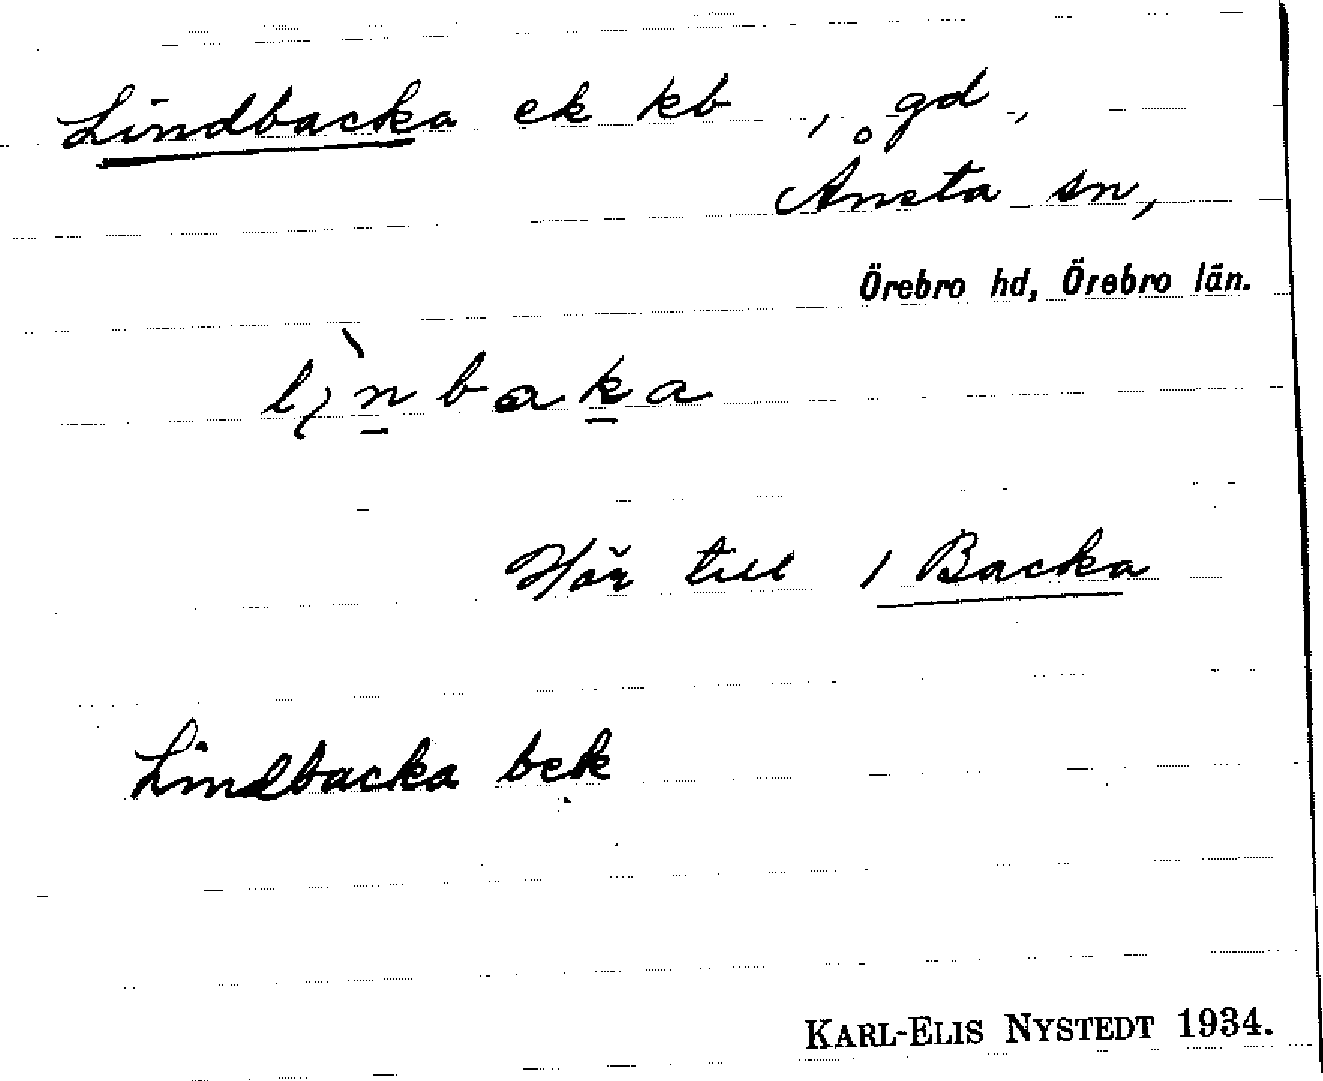 Lindbacka ek kb, gd,
Ånsta sn,
Örebro hd, Örebro län.
lı̀n̲bak̲a
Hör till 1 Backa
Lindbacka bek
KARL-ELIS NYSTEDT 1934.